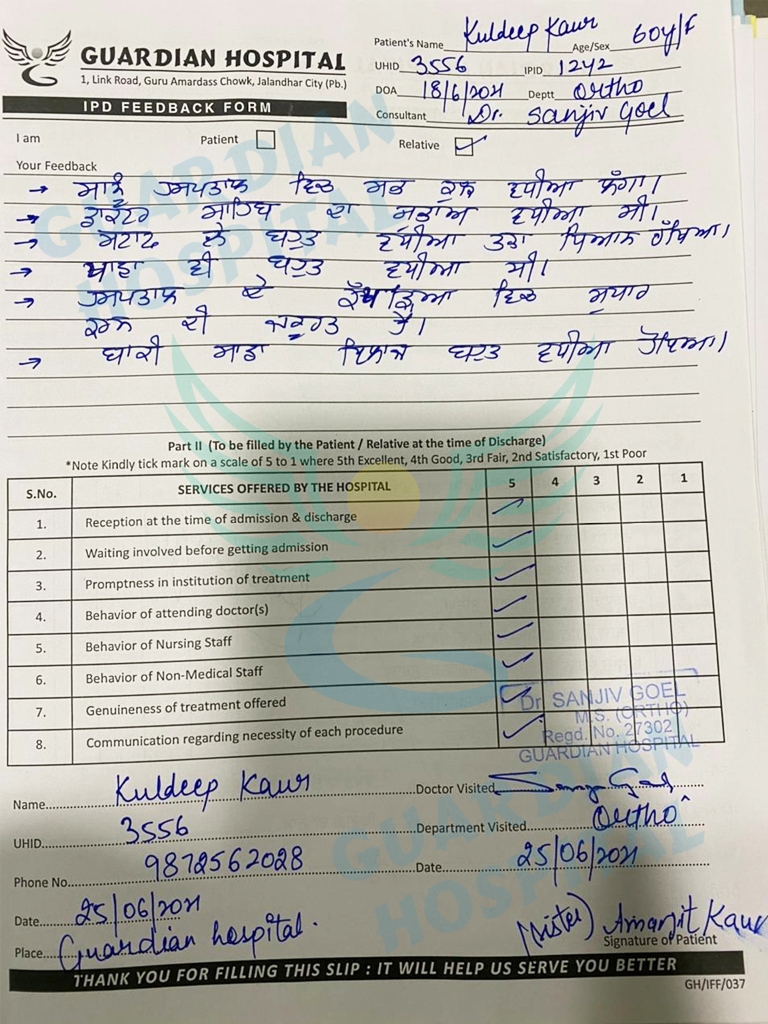 GUARDIAN HOSPITAL
1, Link Road, Guru Amardass Chowk, Jalandhar City (Pb.)
IPD FEEDBACK FORM
Patient's Name Kuldeep Kaur Age/Sex 60y/F
UHID 3556 IPID 1242
DOA 18/6/2021 Deptt Ortho
Consultant Dr. Sanjiv Goel
I am Patient Relative ✓
Your Feedback
→ ਸਾਨੂੰ ਹਸਪਤਾਲ ਵਿਚ ਸਭ ਕੁਝ ਵਧੀਆ ਲੱਗਾ।
→ ਡਾਕਟਰ ਸਾਹਿਬ ਦਾ ਸੁਭਾਅ ਵਧੀਆ ਸੀ।
→ ਸਟਾਫ ਨੇ ਬਹੁਤ ਵਧੀਆ ਤਰਾਂ ਧਿਆਨ ਰੱਖਿਆ।
→ ਖਾਣਾ ਵੀ ਬਹੁਤ ਵਧੀਆ ਸੀ।
→ ਹਸਪਤਾਲ ਦੇ ਵਿਚ ਸੁਧਾਰ
ਕਰਨ ਦੀ ਜਰੂਰਤ ਹੈ।
→ ਬਾਕੀ ਸਾਡਾ ਇਲਾਜ ਬਹੁਤ ਵਧੀਆ ਹੋਇਆ।
Part II (To be filled by the Patient / Relative at the time of Discharge)
*Note Kindly tick mark on a scale of 5 to 1 where 5th Excellent, 4th Good, 3rd Fair, 2nd Satisfactory, 1st Poor
S.No. SERVICES OFFERED BY THE HOSPITAL 5 4 3 2 1
1. Reception at the time of admission & discharge ✓
2. Waiting involved before getting admission ✓
3. Promptness in institution of treatment ✓
4. Behavior of attending doctor(s) ✓
5. Behavior of Nursing Staff ✓
6. Behavior of Non-Medical Staff ✓
7. Genuineness of treatment offered ✓
8. Communication regarding necessity of each procedure ✓
Dr. SANJIV GOEL
M.S. (ORTHO)
Regd. No. 27302
GUARDIAN HOSPITAL
Name Kuldeep Kaur Doctor Visited
UHID 3556 Department Visited Ortho
Phone No. 9872562028 Date 25/06/2021
Date 25/06/2021
Place Guardian hospital. (sister) Amarjit Kaur
Signature of Patient
THANK YOU FOR FILLING THIS SLIP : IT WILL HELP US SERVE YOU BETTER
GH/IFF/037
GUARDIAN HOSPITAL
GUARDIAN HOSPITAL